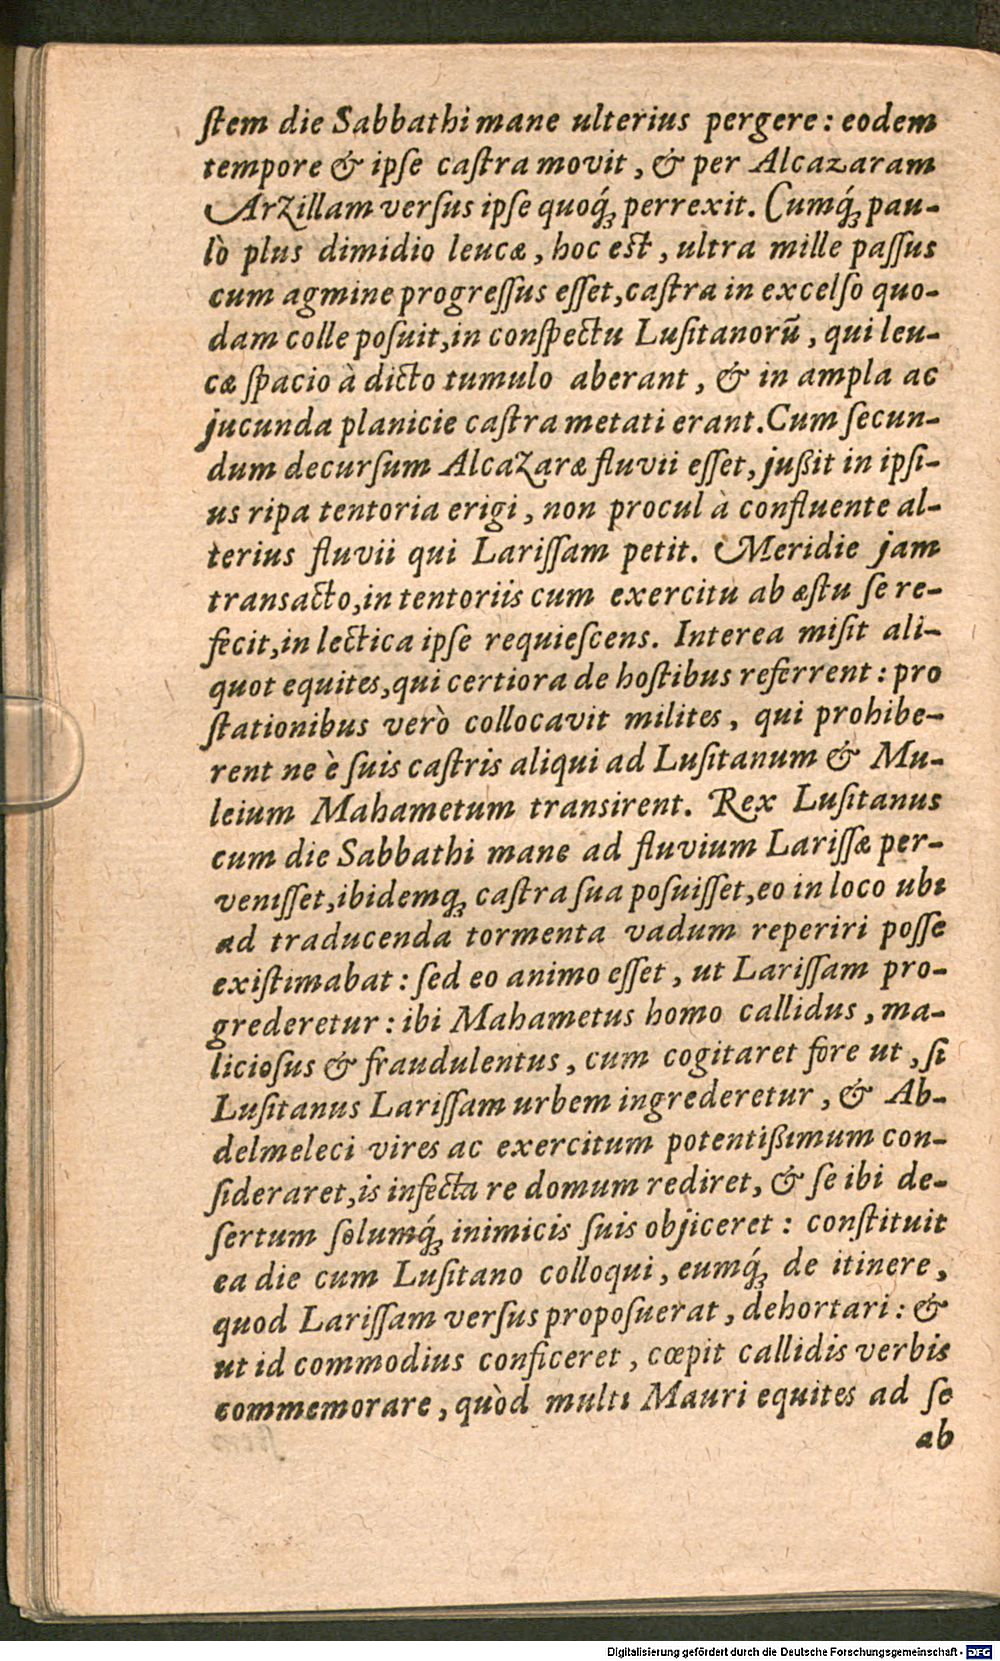 ſtem die Sabbathi mane ulterius pergere: eodem
tempore & ipſe caſtra movit, & per Alcazaram
Arzillam verſus ipſe quoq́ꝫ perrexit. Cumq́ꝫ pau-
lò plus dimidio leucæ, hoc est, ultra mille paſſus
cum agmine progreſſus eſſet, caſtra in excelſo quo-
dam colle poſuit, in conſpectu Luſitanorũ, qui leu-
cæ ſpacio à dicto tumulo aberant, & in ampla ac
jucunda planicie caſtra metati erant. Cum ſecun-
dum decurſum Alcazaræ fluvii eſſet, jußit in ipſi-
us ripa tentoria erigi, non procul à confluente al-
terius fluvii qui Lariſſam petit. Meridie jam
transacto, in tentoriis cum exercitu ab æſtu ſe re-
fecit, in lectica ipſe requieſcens. Interea miſit ali-
quot equites, qui certiora de hoſtibus referrent: pro
ſtationibus verò collocavit milites, qui prohibe-
rent ne è ſuis caſtris aliqui ad Luſitanum & Mu-
leium Mahametum transirent. Rex Luſitanus
cum die Sabbathi mane ad fluvium Lariſſæ per-
veniſſet, ibidemqꝫ caſtra ſua poſuiſſet, eo in loco ubi
ad traducenda tormenta vadum reperiri poſſe
exiſtimabat: ſed eo animo eſſet, ut Lariſſam pro-
grederetur: ibi Mahametus homo callidus, ma-
licioſus & fraudulentus, cum cogitaret fore ut, ſi
Luſitanus Lariſſam urbem ingrederetur, & Ab-
delmeleci vires ac exercitum potentißimum con-
ſideraret, is infecta re domum rediret, & ſe ibi de-
ſertum ſolumq́ꝫ inimicis ſuis objiceret: conſtituit
ea die cum Luſitano colloqui, eumq́ꝫ de itinere,
quod Lariſſam verſus propoſuerat, dehortari: &
ut id commodius conficeret, cœpit callidis verbis
commemorare, quòd multi Mauri equites ad ſe
ab
Digitalisierung gefördert durch die Deutsche Forschungsgemeinschaft - DFG